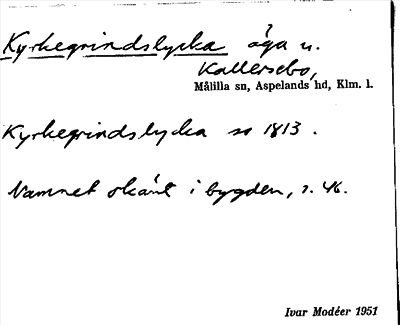 Kyrkegrindslycka åga u.
Kallersebo,
Målilla sn, Aspelands hd, Klm. l.
Kyrkegrindslycka so 1813.
Namnet okänt i bygden, s. 46.
Ivar Modéer 1951